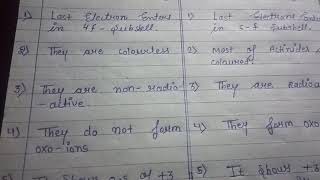 1) Last Electron Enters 1) Last Electrons Enters
in 4f - subshell. in 5-f subshell.
2) They are colourless 2) Most of Actinides
coloured.
3) They are non-radio 3) They are Radioa
-active.
4) They do not form 4) They form oxo
oxo-ions
of +3 5) It shows +3